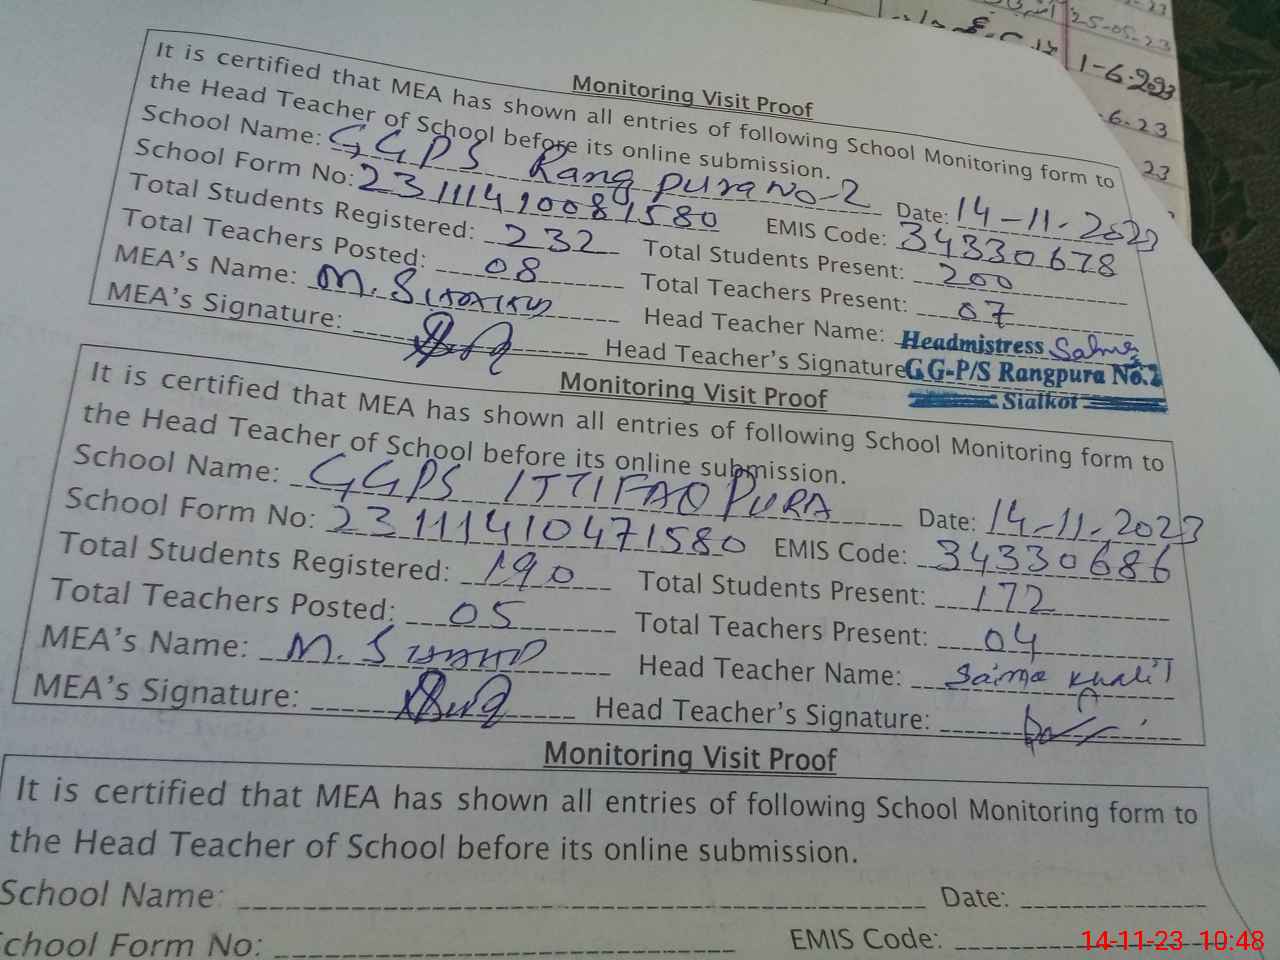 25-05-23
1-6-2023
6.23
23
Monitoring Visit Proof
It is certified that MEA has shown all entries of following School Monitoring form to
the Head Teacher of School before its online submission.
School Name: GGPS Rang pura No-2 Date: 14-11-2023
School Form No: 23111410081580 EMIS Code: 34330678
Total Students Registered: 232 Total Students Present: 200
Total Teachers Posted: 08 Total Teachers Present: 07
MEA's Name: M. Head Teacher Name: Headmistress Salma
MEA's Signature: Head Teacher's Signature G G-P/S Rangpura No.2
Sialkot
Monitoring Visit Proof
It is certified that MEA has shown all entries of following School Monitoring form to
the Head Teacher of School before its online submission.
School Name: GGPS ITTIFAQ PURA Date: 14-11-2023
School Form No: 23111410471580 EMIS Code: 34330686
Total Students Registered: 190 Total Students Present: 172
Total Teachers Posted: 05 Total Teachers Present: 04
MEA's Name: M. Head Teacher Name: Saima Khalil
MEA's Signature: Head Teacher's Signature:
Monitoring Visit Proof
It is certified that MEA has shown all entries of following School Monitoring form to
the Head Teacher of School before its online submission.
School Name: Date:
School Form No: EMIS Code:
14-11-23 10:48